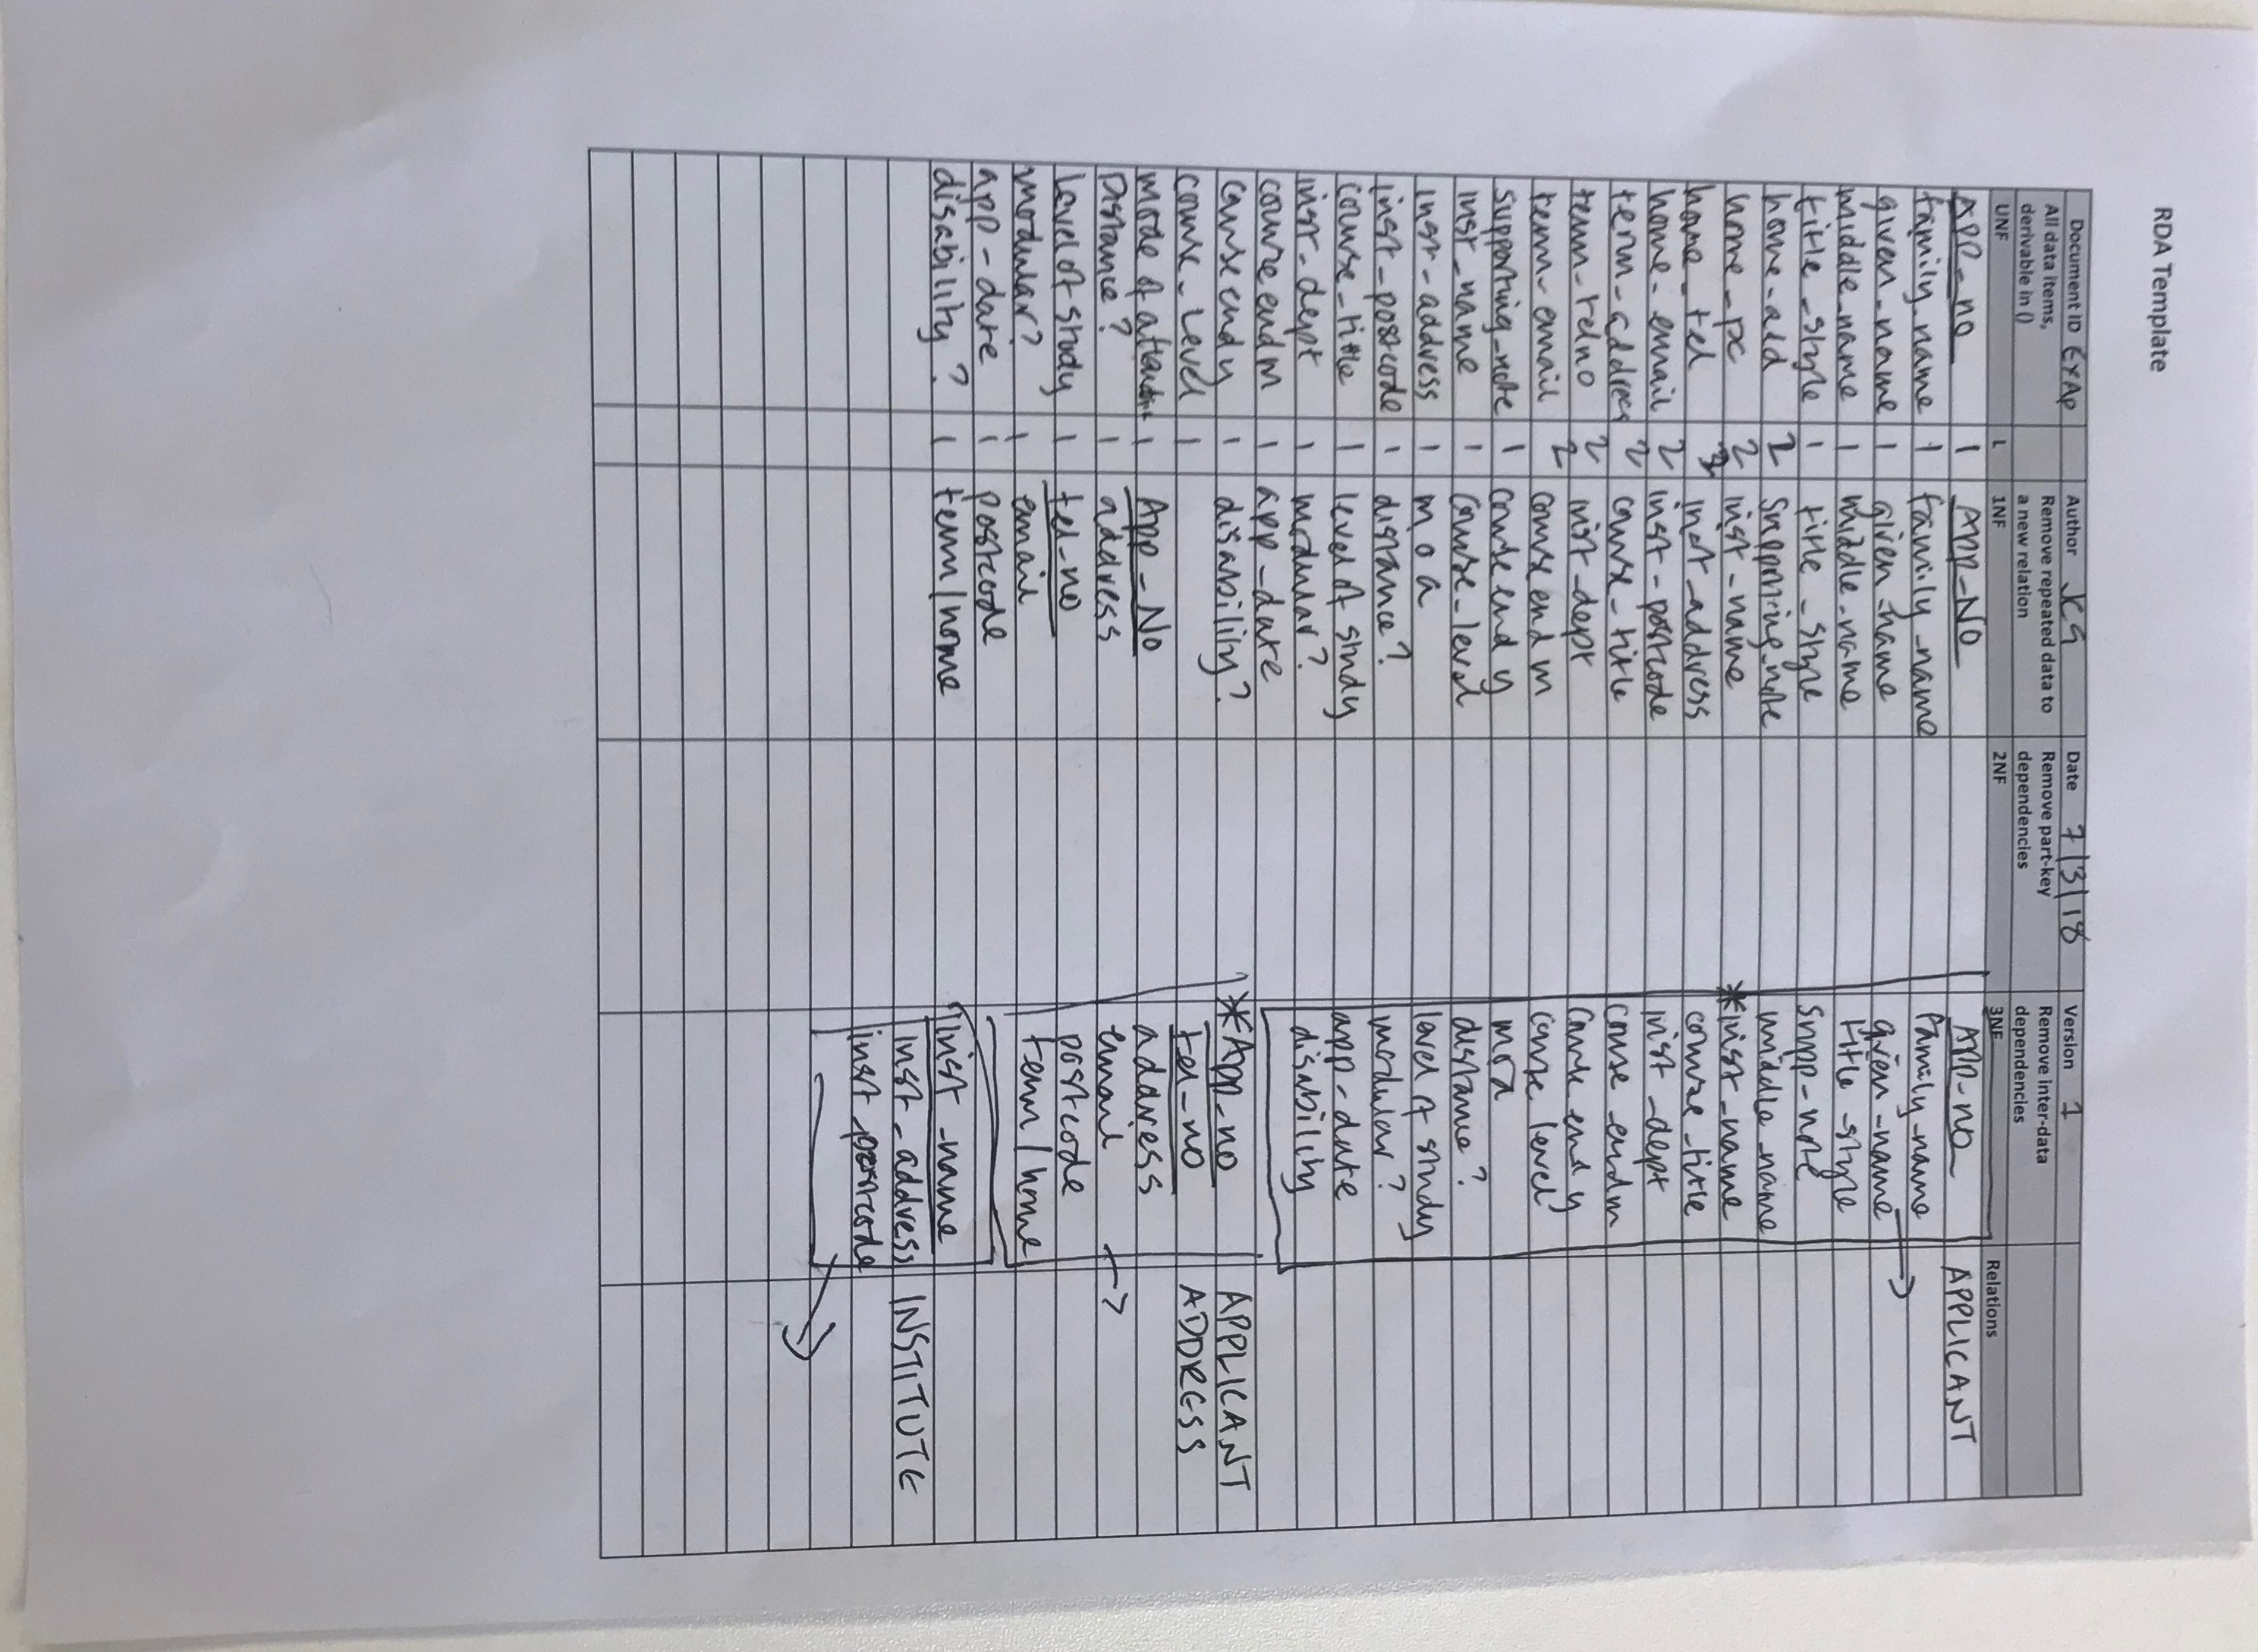 RDA Template
Document ID ExAp Author JCG Date 7/3/18 Version 1
All data items, derivable in () Remove repeated data to a new relation Remove part-key dependencies Remove inter-data dependencies
UNF L 1NF 2NF 3NF Relations
APP_no 1 APP-NO APP-no APPLICANT
family_name 1 family_name family_name
given_name 1 given_name given_name
middle_name 1 middle_name title_style
title_style 1 title_style supp-note
home-add 2 supporting_note middle_name
home_pc 2 inst_name *inst_name
home_tel inst_address course_title
home-email 2 inst-postcode inst_dept
term-address 2 course-title course_endm
term-telno 2 inst_dept course end y
term-email 2 course end m course level
supporting_note 1 course end y moa
inst_name 1 course_level distance?
inst-address 1 moa level of study
inst_postcode 1 distance? modular?
course-title 1 level of study app-date
inst_dept 1 modular? disability
course endm 1 app_date
course endy 1 disability? *App_no APPLICANT
course_level 1 tel-no ADDRESS
mode of 1 App_No address
Distance? 1 address email
Level of study 1 tel-no postcode
modular? 1 email term/home
app-date 1 postcode
disability? 1 term/home inst_name
inst_address INSTITUTE
inst_postcode